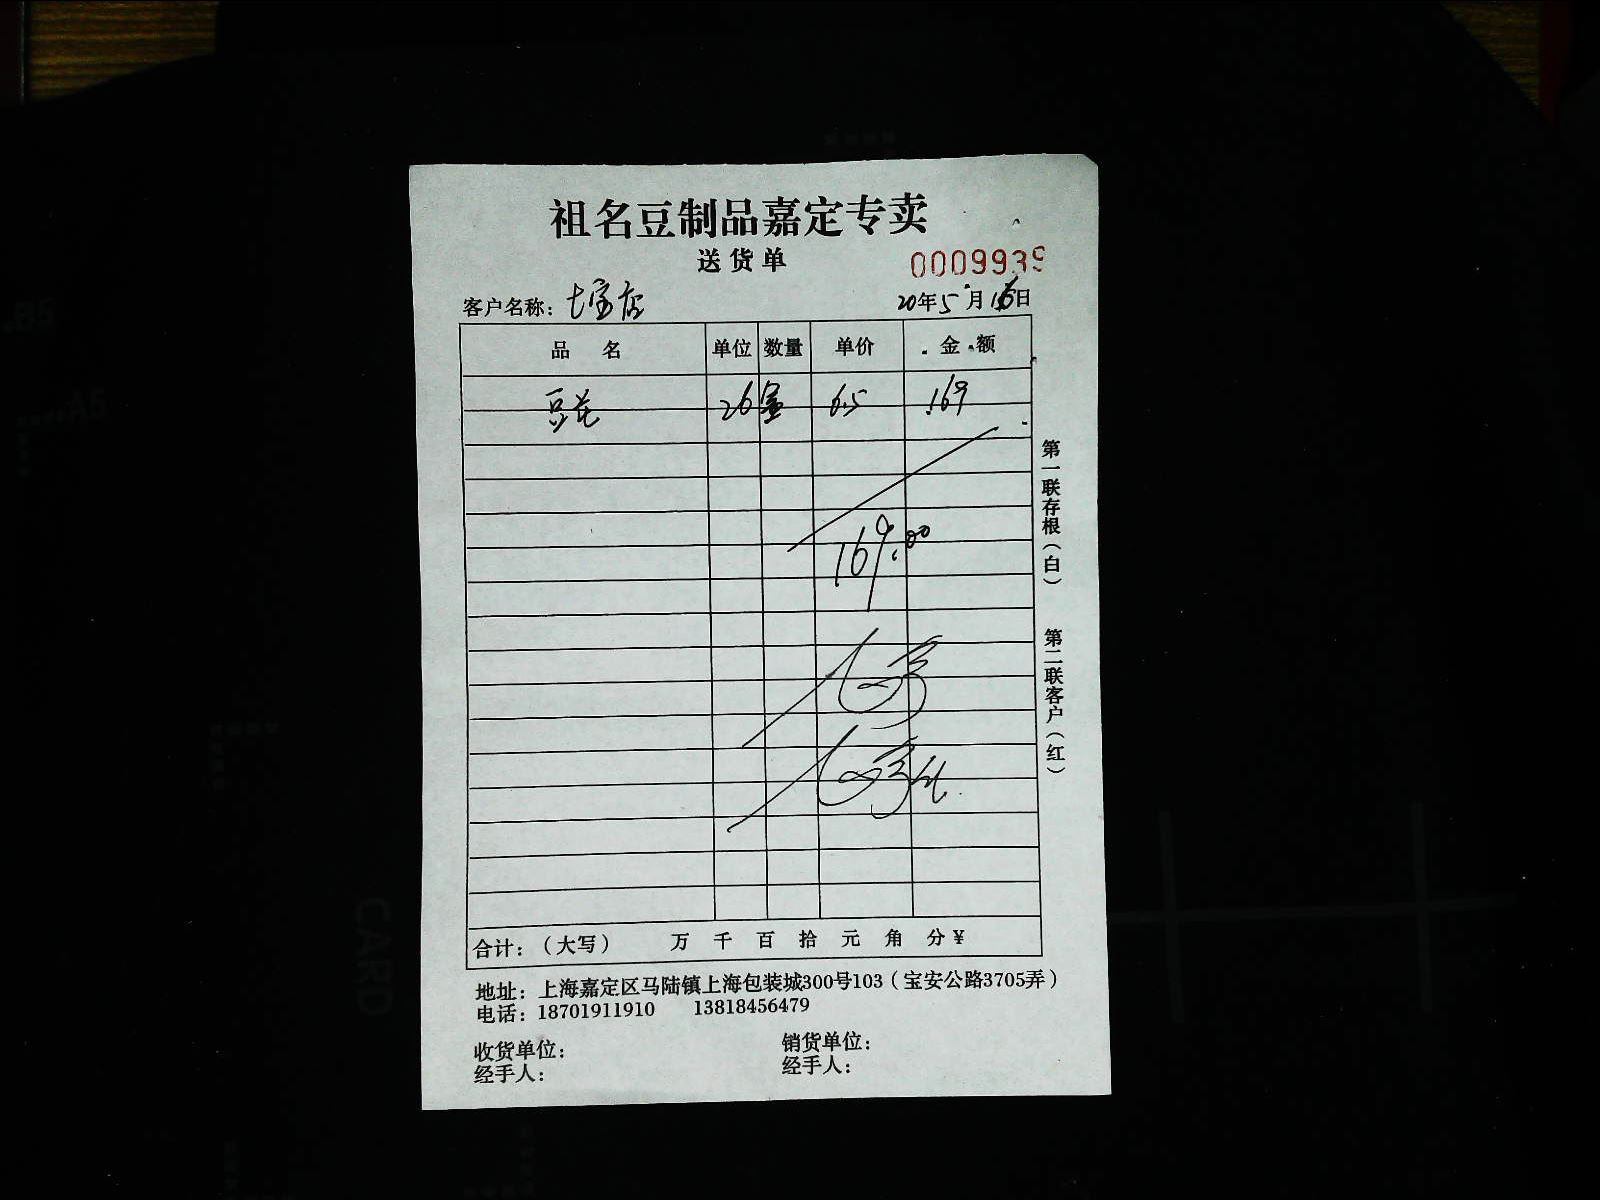 祖名豆制品嘉定专卖
送货单
0009939
客户名称：七宝店
20年5月16日
品名 单位 数量 单价 金额
豆花 26盒 6.5 169
169.00
合计：（大写） 万 千 百 拾 元 角 分 ¥
地址：上海嘉定区马陆镇上海包装城300号103（宝安公路3705弄）
电话：18701911910 13818456479
收货单位：
经手人：
销货单位：
经手人：
第一联存根（白）
第二联客户（红）
CARD
A5
B5